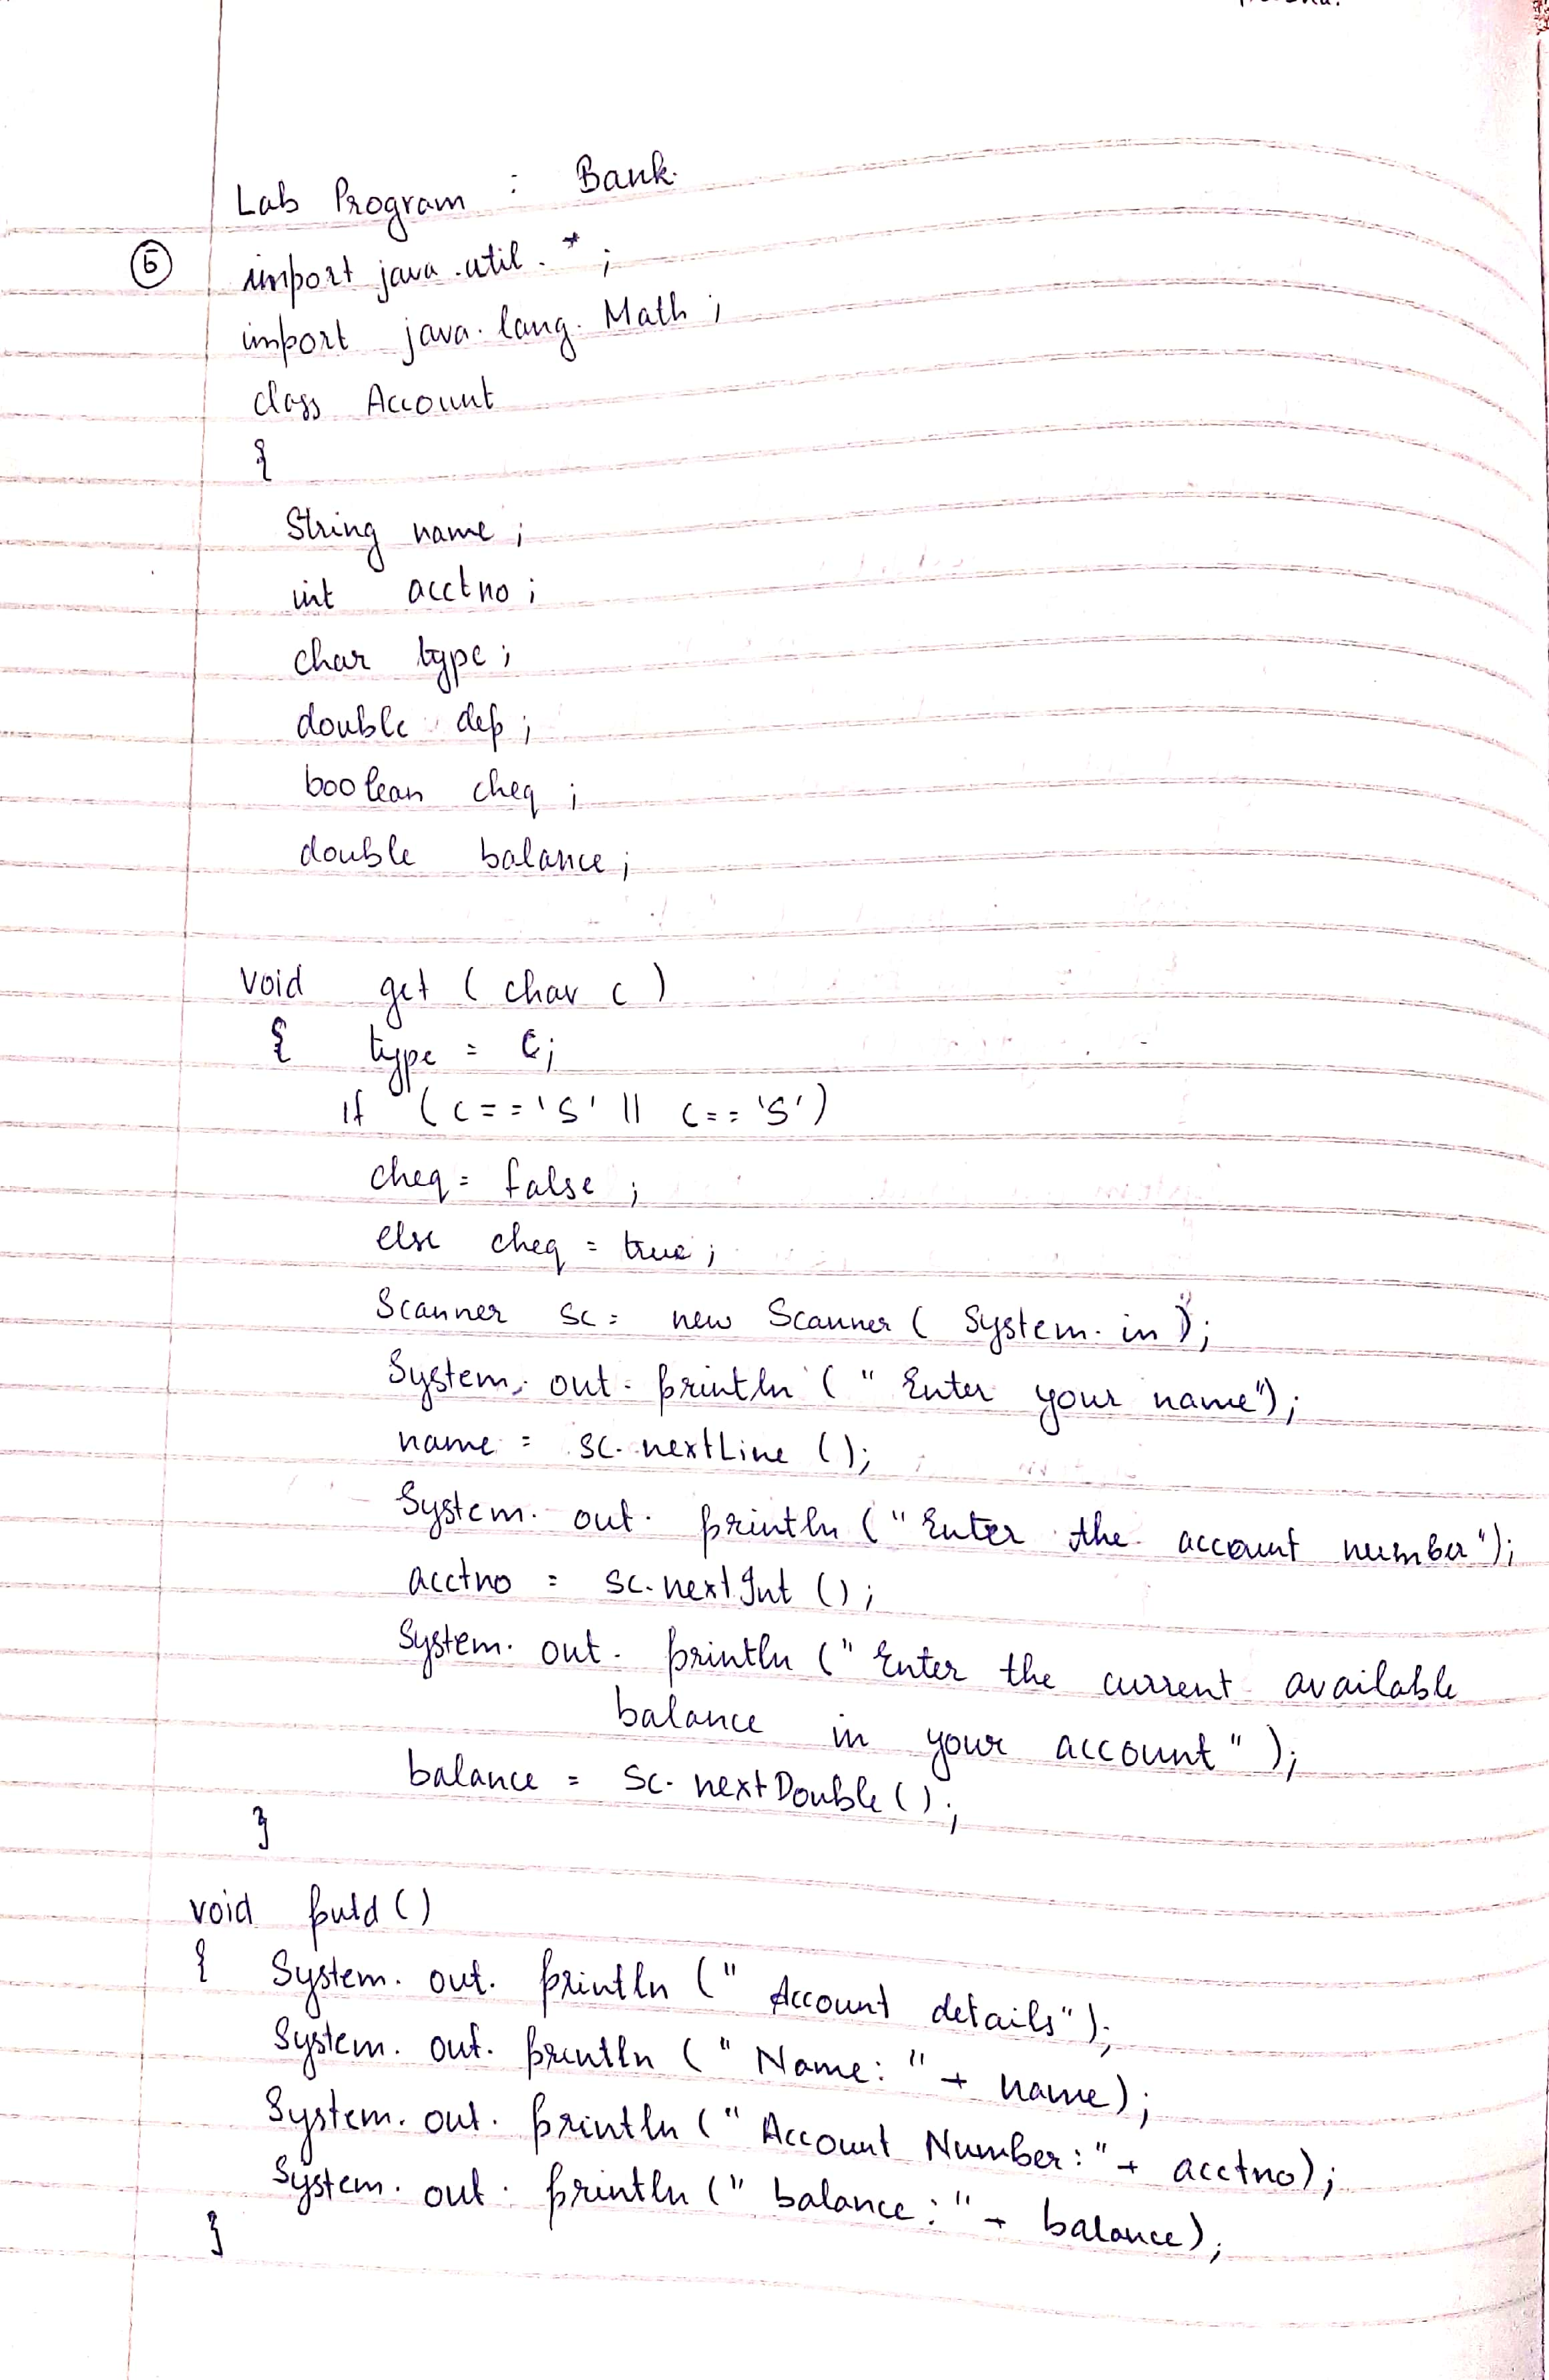 Lab Program : Bank.
5 import java.util.*;
import java.lang.Math;
class Account
{
String name;
int acctno;
char type;
double dep;
boolean cheq;
double balance;
void get (char c)
{ type = c;
if (c=='s' || c=='S')
cheq = false;
else cheq = true;
Scanner sc = new Scanner (System.in);
System.out.println (" Enter your name");
name = sc.nextLine ();
System.out.println (" Enter the account number");
acctno = sc.nextInt ();
System.out.println (" Enter the current available
balance in your account" );
balance = sc.nextDouble ();
}
void putd ()
{ System.out.println (" Account details");
System.out.println (" Name: " + name);
System.out.println (" Account Number:" + acctno);
System.out.println (" balance: " + balance);
}